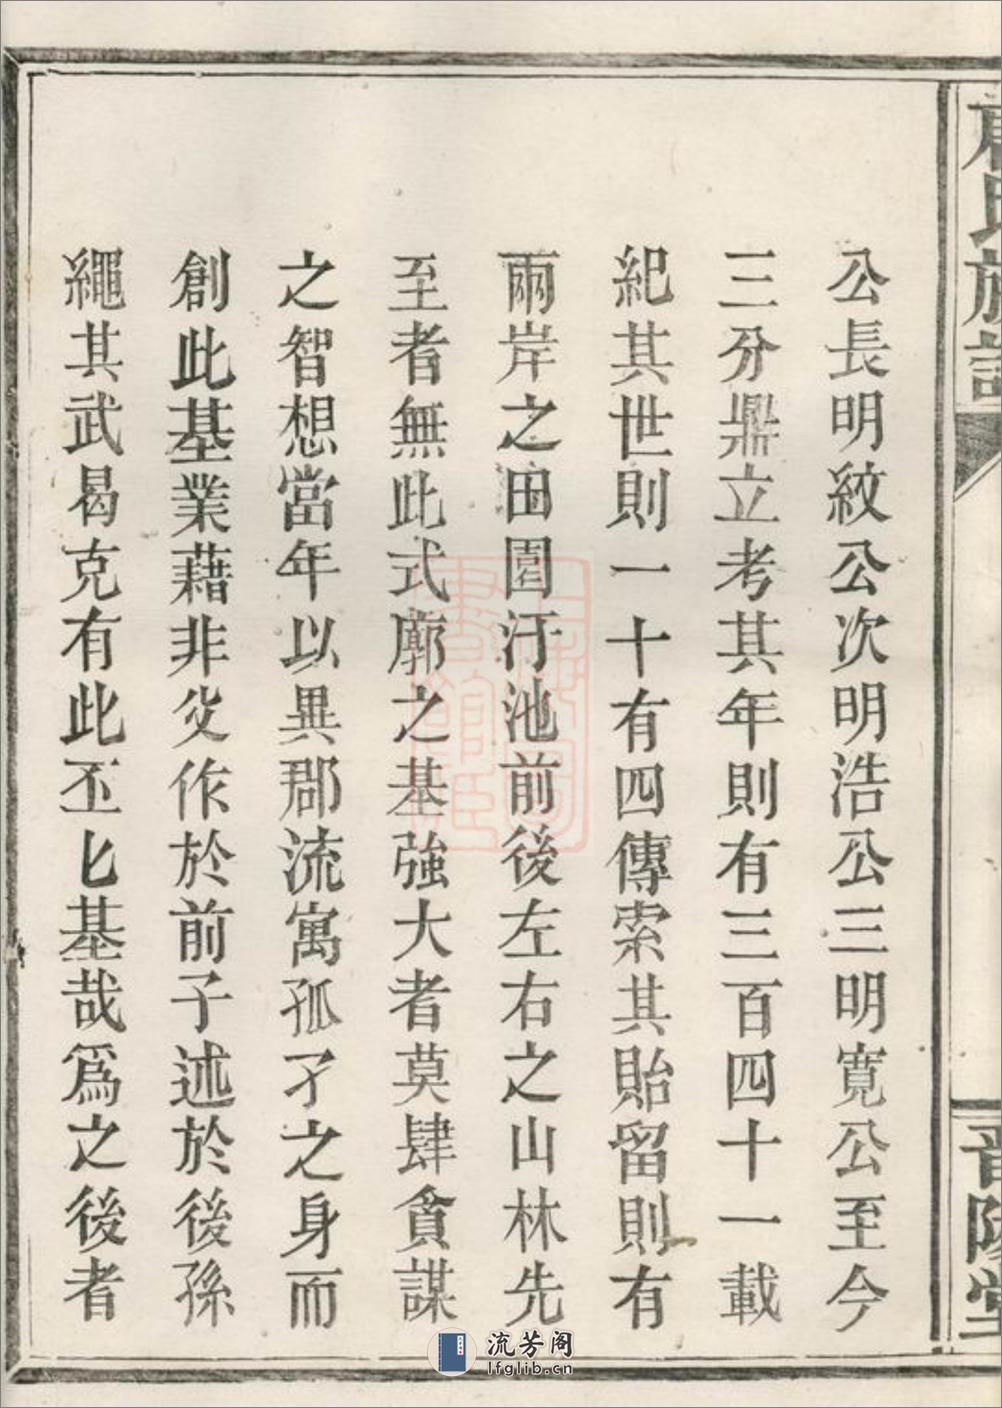 公長明紋公次明浩公三明寬公至今
三分鼎立考其年則有三百四十一載
紀其世則一十有四傳索其貽留則有
兩岸之田園汙池前後左右之山林先
至者無此式廓之基強大者莫肆貪謀
之智想當年以異郡流寓孤孑之身而
創此基業藉非父作於前子述於後孫
繩其武曷克有此丕丕基哉為之後者
氏族譜
晉陽堂
上海圖
書館藏
流芳阁
lfglib.cn